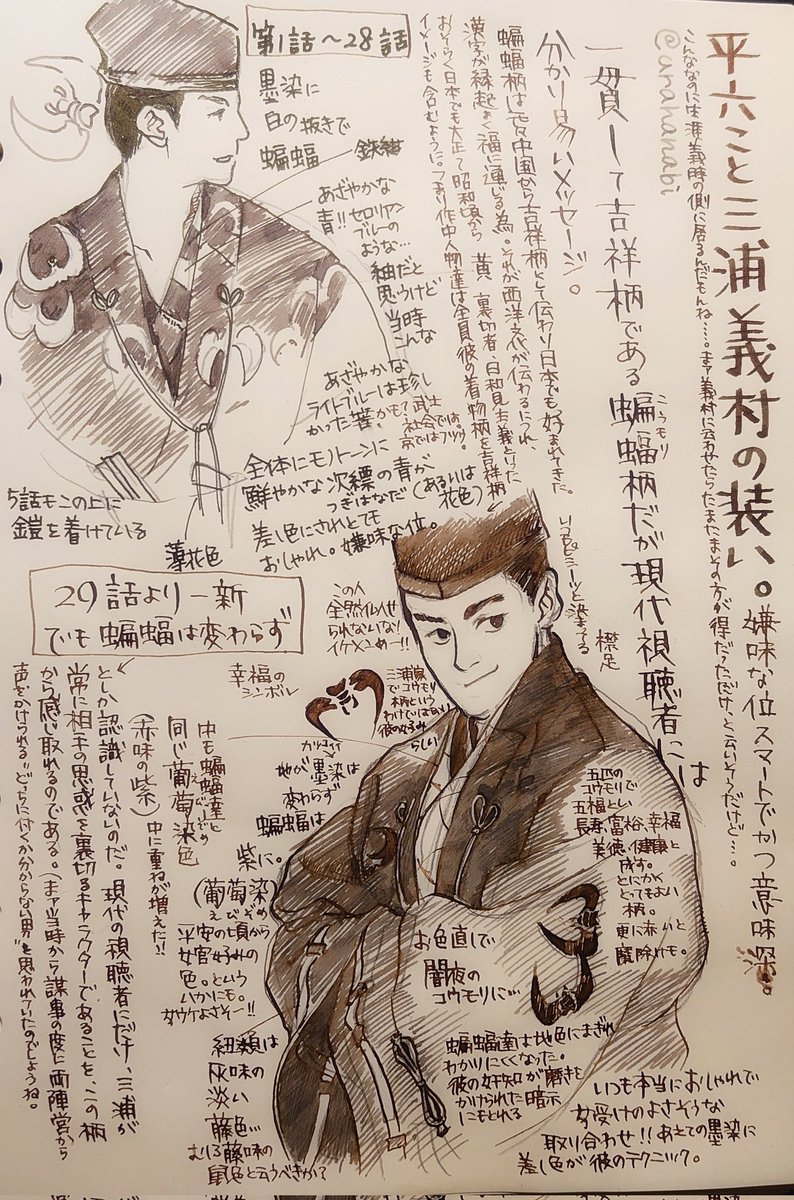 平六こと三浦義村の装い。嫌味な位スマートでかつ意味深。
@arahanabi
こんななのに生涯義時の側に居るんだもんね…。まァ義村に云わせたらたまたまその方が得だっただけ、と云いそうだけど…。
一貫して吉祥柄である蝙蝠柄だが現代視聴者には
コウモリ
分かり易いメッセージ。
蝙蝠柄は元々中国から吉祥柄として伝わり日本でも好まれてきた。
漢字が縁起よく福に通じる為。それが西洋文化が伝わるにつれ、
おそらく日本でも大正〜昭和頃から
裏切者、日和見主義といった
イメージも含むように。つまり作中人物達は全員彼の着物柄を吉祥柄
第1話〜28話
墨染に
白の抜きで
蝙蝠
鉄紺
あざやかな
青!!セロリアン
ブルーの
ような…
紐だと
思うけど
当時こんな
あざやかな
ライトブルーは珍し
かった筈かも?武士
社会では。
京ではフツウ。
全体にモノトーンに
鮮やかな次縹の青が
つぎはなだ
(あるいは
花色)
差し色にされとても
おしゃれ。嫌味な位。
5話モこの上に
鎧を着けている
薄花色
29話より一新
でも蝙蝠は変わらず
としか認識していないのだ。現代の視聴者にだけ、三浦が
常に相手の思惑を裏切るキャラクターであることを、この柄
から感じ取れるのである。(まァ当時から謀事の度に両陣営から
声をかけられる"どっちに付くか分からない男"と思われていたのでしょうね。
この人
全然似せ
られないな!
イケメンめー!!
いつもビシーッと染まってる
襟足
幸福の
シンボル
三浦家
コウモリ
柄という
わけではない
彼の好み
らしい
地が墨染は
変わらず
蝙蝠は
紫に。
(葡萄染)
えびぞめ
平安の頃から
女官好みの
色。という
いかにも。
女ウケよさそー!!
中も蝙蝠達と
同じ葡萄染色
えびぞめ
(赤味の紫)
中に重ねが増えた!!
紐類は
灰味の
淡い
藤色。
藤味の
鼠色と云うべきか?
五匹の
コウモリで
五福といい
長寿、富裕、幸福
美徳、健康と
成す。
とにかく
とってもよい
柄。
更に赤いと
魔除けも。
お色直しで
闇夜の
コウモリに…
蝙蝠達は地色にまぎれ
わかりにくくなった。
彼の奸知が磨きを
かけられた暗示
にもとれる
いつも本当におしゃれで
女受けのよさそうな
取り合わせ!!あえての墨染に
差し色が彼のテクニック。